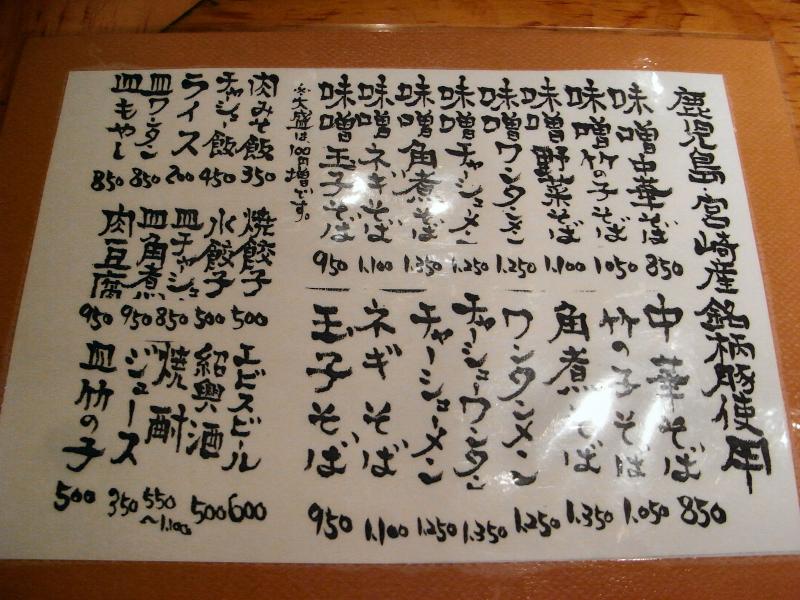 鹿児島・宮崎産銘柄豚使用
味噌中華そば 850
味噌竹の子そば 1050
味噌野菜そば 1.100
味噌ワンタンメン 1.250
味噌チャーシューメン 1.250
味噌角煮そば 1.350
味噌ネギそば 1.100
味噌玉子そば 950
※大盛は100円増です。
中華そば 850
竹の子そば 1.050
角煮そば 1.350
ワンタンメン 1.250
チャーシューワンタン 1.350
チャーシューメン 1.250
ネギそば 1.100
玉子そば 950
肉みそ飯 350
チャシュー飯 450
ライス 200
皿ワンタン 850
皿もやし 850
焼餃子 500
水餃子 500
皿チャーシュー 850
皿角煮 950
肉豆腐 950
エビスビール 600
紹興酒 500
焼酎 550〜1.100
ジュース 350
皿竹の子 500